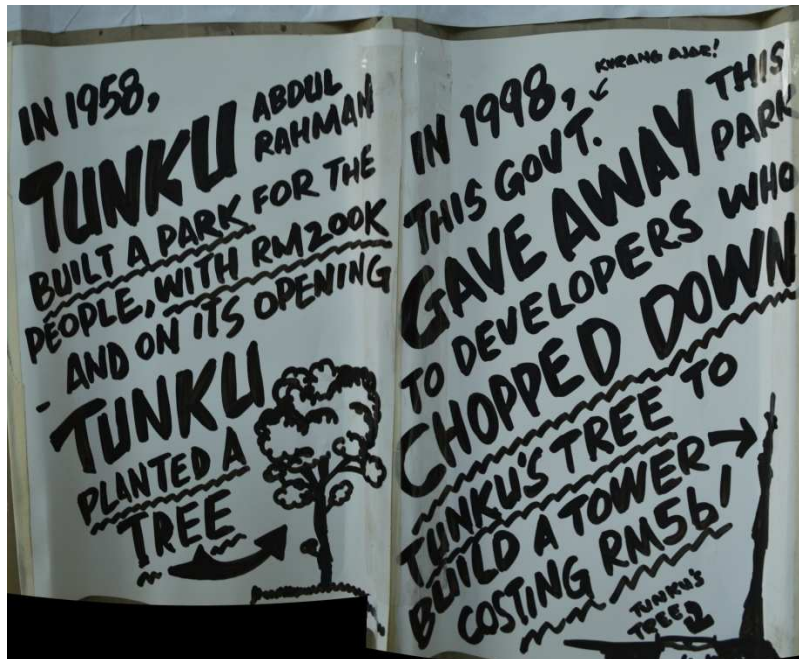 IN 1958,
TUNKU ABDUL
RAHMAN
BUILT A PARK FOR THE
PEOPLE, WITH RM200K
- AND ON ITS OPENING
TUNKU
PLANTED A
TREE
KURANG AJAR!
IN 1998,
THIS GOVT.
GAVE AWAY THIS
PARK
TO DEVELOPERS WHO
CHOPPED DOWN
TUNKU'S TREE TO
BUILD A TOWER
COSTING RM5b!
TUNKU'S
TREE